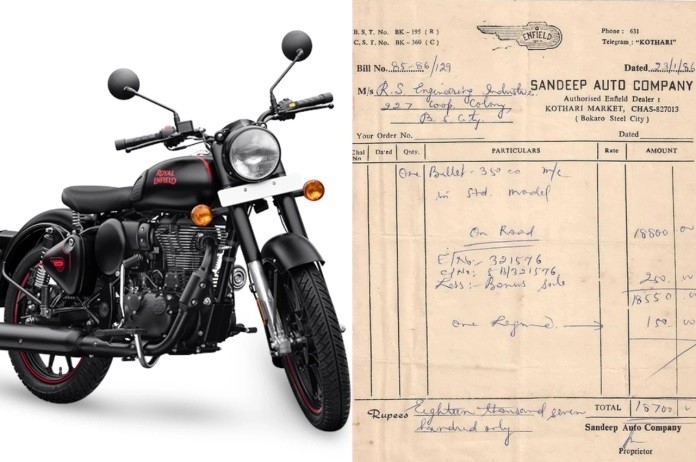 ROYAL
ENFIELD
B. S. T. No. BK - 195 ( R )
C. S. T. No. BK - 360 ( C )
ENFIELD
Phone : 631
Telegram : "KOTHARI"
Bill No. 85-86/129
Dated 23/1/86
SANDEEP AUTO COMPANY
M/s R. S. Engineering Industries
Authorised Enfield Dealer :
227 Coop. Colony
KOTHARI MARKET, CHAS-827013
B. S. City
( Bokaro Steel City )
Your Order No.
Dated
Chal No Dated Qnty. PARTICULARS Rate AMOUNT
One Bullet - 350 cc m/c
in Std. model
On Road 18800 00
E/No:- 321576
C/No:- 5B/321576 250 00
Less:- Bonus
18550 00
One 150 00
Rupees Eighteen thousand seven
hundred only
TOTAL 18700
Sandeep Auto Company
Proprietor